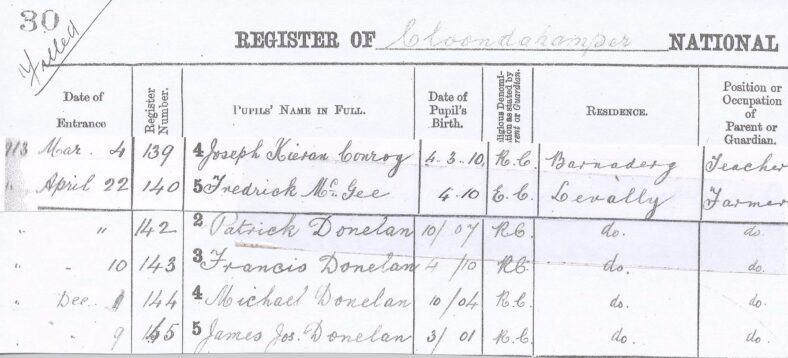 30
Filled
REGISTER OF Cloondahamper NATIONAL
Date of Entrance Register Number. PUPILS' NAME IN FULL. Date of Pupil's Birth. ligious Denomi- tion as stated by rent or Guardian. RESIDENCE. Position or Occupation of Parent or Guardian.
913 Mar. 4 139 4 Joseph Kieran Conroy 4-3-10 R.C. Barnaderg Teacher
" April 22 140 5 Fredrick Mc Gee 4.10 E.C. Levally Farmer
" " 142 2 Patrick Donelan 10/07 R.C. do. do.
" " 10 143 3 Francis Donelan 4/10 R.C. do. do.
" Dec. 1 144 4 Michael Donelan 10/04 R.C. do. do.
" 9 145 5 James Jos. Donelan 3/01 R.C. do. do.